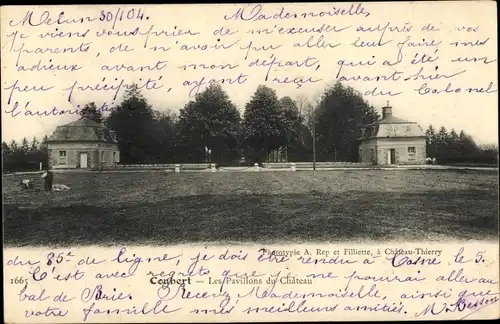 Melun 30/104. Mademoiselles,
Je viens vous prier de m'excuser auprès de vos
parents, de n'avoir pu aller leur faire mes
adieux avant mon départ, qui a été un
peu précipité, ayant reçu avant-hier
l'autorisation du Colonel
du 85e de ligne, je dois être rendu à Cosne le 5.
Phototypie A. Rep et Filliette, à Château-Thierry
1665 Combert - Les Pavillons du Château
C'est avec regret que je ne pourrai aller au
bal de Brie. Recevez Mademoiselle, ainsi que
votre famille mes meilleurs amitiés,